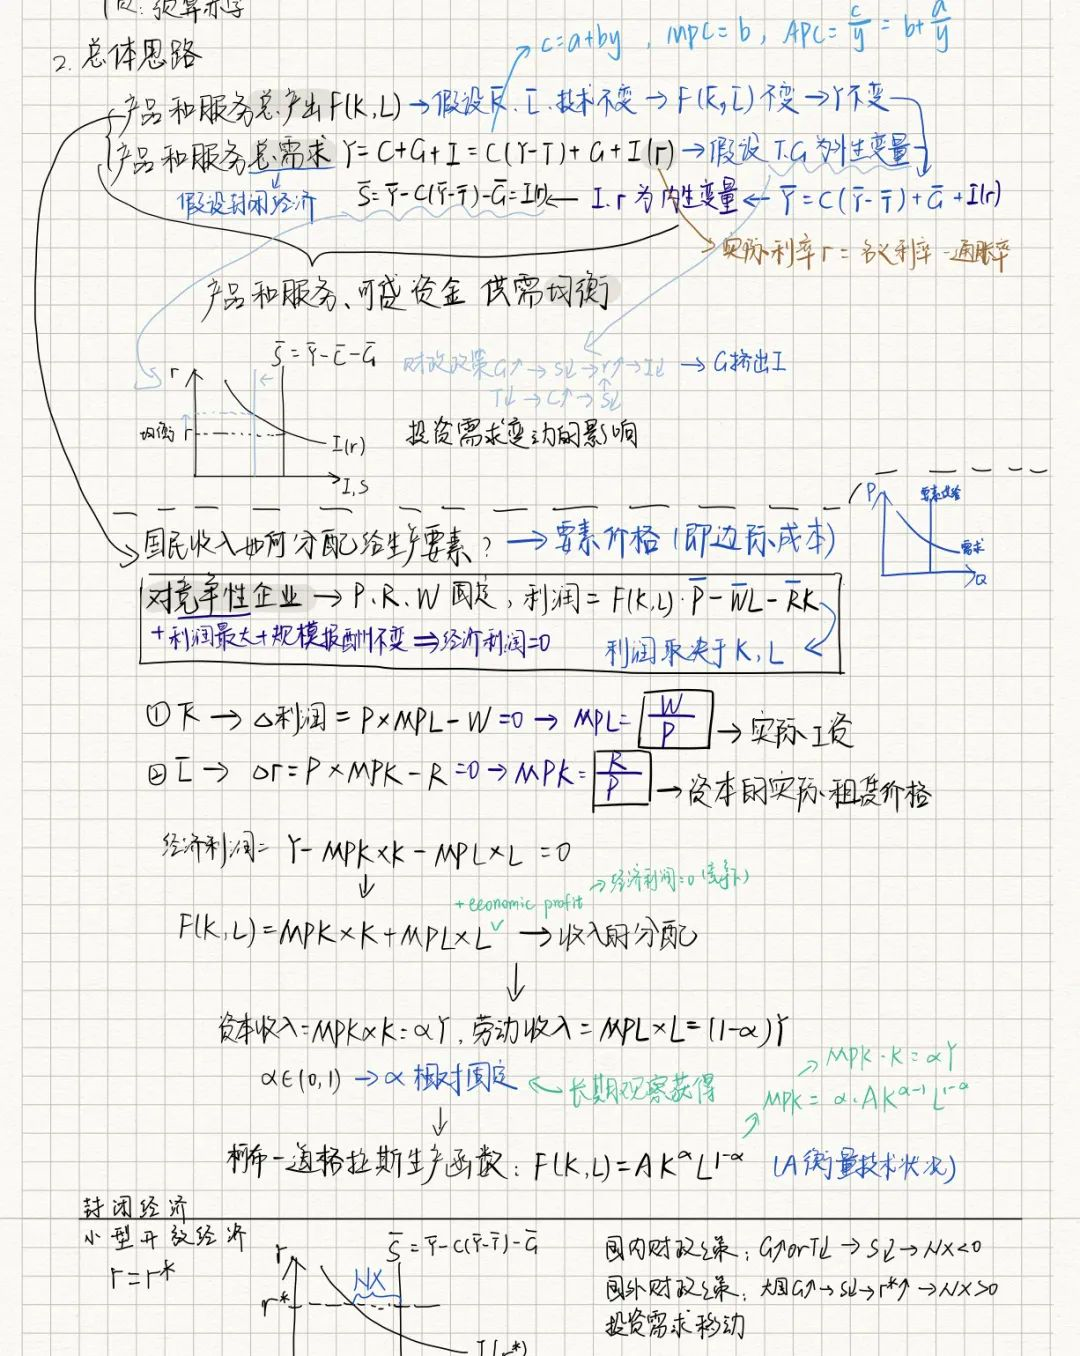 预算赤字
c=a+by , MPC=b, APC=c/y=b+a/y
2. 总体思路
产品和服务总产出F(K,L)→假设K̄、L̄、技术不变→F(K̄,L̄)不变→Y不变
产品和服务总需求 Y=C+G+I=C(Y-T)+G+I(r)→假设T.G为外生变量
假设封闭经济 S̄=Ȳ-C(Ȳ-T̄)-Ḡ=I(r)← I.r为内生变量← Ȳ=C(Ȳ-T̄)+Ḡ+I(r)
→实际利率r=名义利率-通胀率
产品和服务、可贷资金 供需均衡
S̄=Ȳ-C̄-Ḡ
财政政策G↑→S↓→r↑→I↓→G挤出I
T↓→C↑→S↓
r
均衡r
I(r)
I,S
投资需求变动的影响
P
要素供给
需求
Q
国民收入如何分配给生产要素?→要素价格(即边际成本)
对竞争性企业→P、R、W固定,利润=F(K,L)·P̄-W̄L-R̄K
+利润最大+规模报酬不变⇒经济利润=0
利润取决于K,L
① K̄→△利润=P×MPL-W=0→MPL=W/P→实际工资
② L̄→△r=P×MPK-R=0→MPK=R/P→资本的实际租赁价格
经济利润=Y-MPK×K-MPL×L=0
↓
+economic profit→经济利润=0(竞争下)
F(K,L)=MPK×K+MPL×L→收入的分配
↓
资本收入=MPK×K=αY,劳动收入=MPL×L=(1-α)Y
α∈(0,1)→α相对固定←长期观察获得
MPK·K=αY
MPK=α·AK^α-1 L^1-α
↓
柯布-道格拉斯生产函数:F(K,L)=AK^αL^1-α (A衡量技术状况)
封闭经济
小型开放经济
r=r*
r
S̄=Ȳ-C(Ȳ-T̄)-Ḡ
NX
r*
I(r*)
国内财政政策:G↑orT↓→S↓→NX<0
国外财政政策:大国G↑→S↓→r*↑→NX>0
投资需求移动